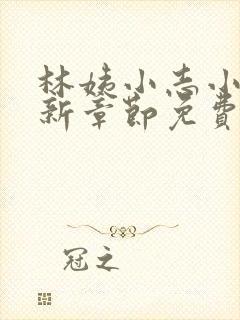 林姨小志小
新章節免費
冠之